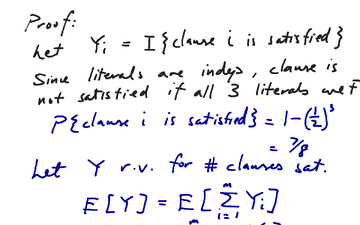 Proof:
Let Yᵢ = I{clause i is satisfied}
Since literals are indep, clause is
not satisfied if all 3 literals are F
P{clause i is satisfied} = 1-(½)³
= 7/8
Let Y r.v. for # clauses sat.
E[Y] = E[∑ᵢ₌₁ᵐ Yᵢ]